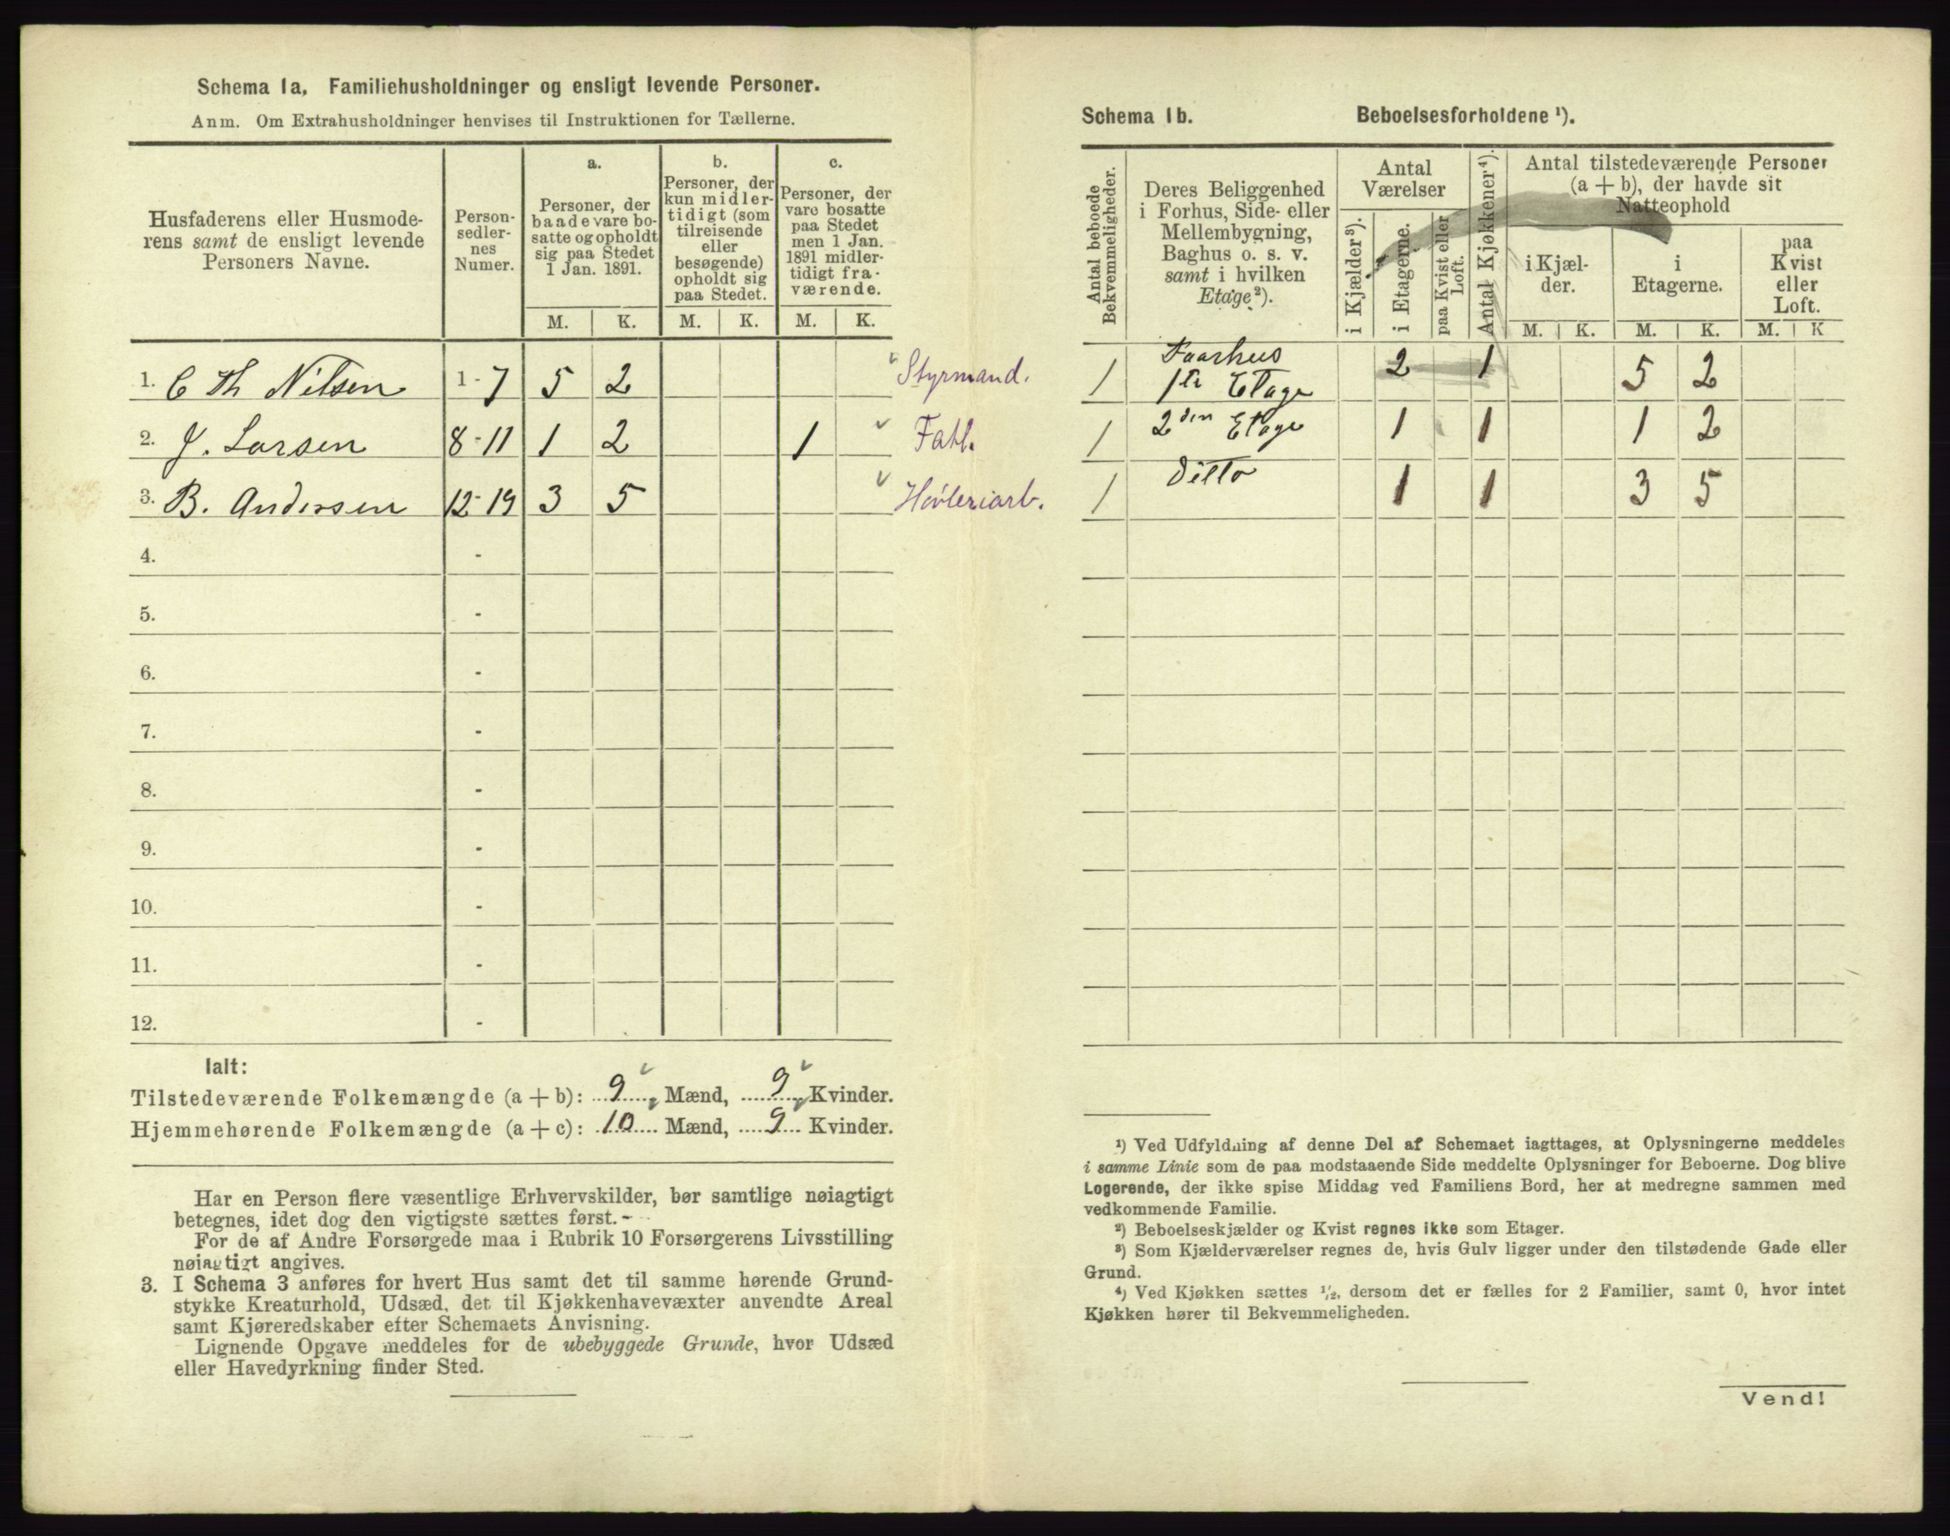 Schema 1a, Familiehusholdninger og ensligt levende Personer.
Anm. Om Extrahusholdninger henvises til Instruktionen for Tællerne.
Husfaderens eller Husmode-
rens samt de ensligt levende
Personers Navne.
Person-
sedler-
nes
Numer.
a.
Personer, der
baade vare bo-
satte og opholdt
sig paa Stedet
1 Jan. 1891.
b.
Personer, der
kun midler-
tidigt (som
tilreisende
eller
besøgende)
opholdt sig
paa Stedet.
c.
Personer, der
vare bosatte
paa Stedet
men 1 Jan.
1891 midler-
tidigt fra-
værende.
M. K. M. K. M. K.
1. C Th Nilsen 1-7 5 2 Styrmand.
2. J. Larsen 8-11 1 2 1
3. B. Andersen 12-19 3 5 Høvleriarb.
4. -
5. -
6. -
7. -
8. -
9. -
10. -
11. -
12. -
Ialt:
Tilstedeværende Folkemængde (a + b): 9 Mænd, 9 Kvinder.
Hjemmehørende Folkemængde (a + c): 10 Mænd, 9 Kvinder.
Har en Person flere væsentlige Erhvervskilder, bør samtlige nøiagtigt
betegnes, idet dog den vigtigste sættes først.
For de af Andre Forsørgede maa i Rubrik 10 Forsørgerens Livsstilling
nøiagtigt angives.
3. I Schema 3 anføres for hvert Hus samt det til samme hørende Grund-
stykke Kreaturhold, Udsæd, det til Kjøkkenhavevæxter anvendte Areal
samt Kjøreredskaber efter Schemaets Anvisning.
Lignende Opgave meddeles for de ubebyggede Grunde, hvor Udsæd
eller Havedyrkning finder Sted.
Schema 1b. Beboelsesforholdene ¹).
Antal beboede
Bekvemmeligheder.
Deres Beliggenhed
i Forhus, Side- eller
Mellembygning,
Baghus o. s. v.
samt i hvilken
Etage²).
Antal
Værelser
i Kjælder³).
i Etagerne.
paa Kvist eller
Loft.
Antal Kjøkkener⁴).
Antal tilstedeværende Personer
(a + b), der havde sit
Natteophold
i Kjæl-
der.
i
Etagerne.
paa
Kvist
eller
Loft.
M. K. M. K. M. K
1 Faarhus
1te Etage 2 1 5 2
1 2den Etage 1 1 1 2
1 Ditto 1 1 3 5
¹) Ved Udfyldning af denne Del af Schemaet iagttages, at Oplysningerne meddeles
i samme Linie som de paa modstaaende Side meddelte Oplysninger for Beboerne. Dog blive
Logerende, der ikke spise Middag ved Familiens Bord, her at medregne sammen med
vedkommende Familie.
²) Beboelseskjælder og Kvist regnes ikke som Etager.
³) Som Kjælderværelser regnes de, hvis Gulv ligger under den tilstødende Gade eller
Grund.
⁴) Ved Kjøkken sættes ½, dersom det er fælles for 2 Familier, samt 0, hvor intet
Kjøkken hører til Bekvemmeligheden.
Vend!